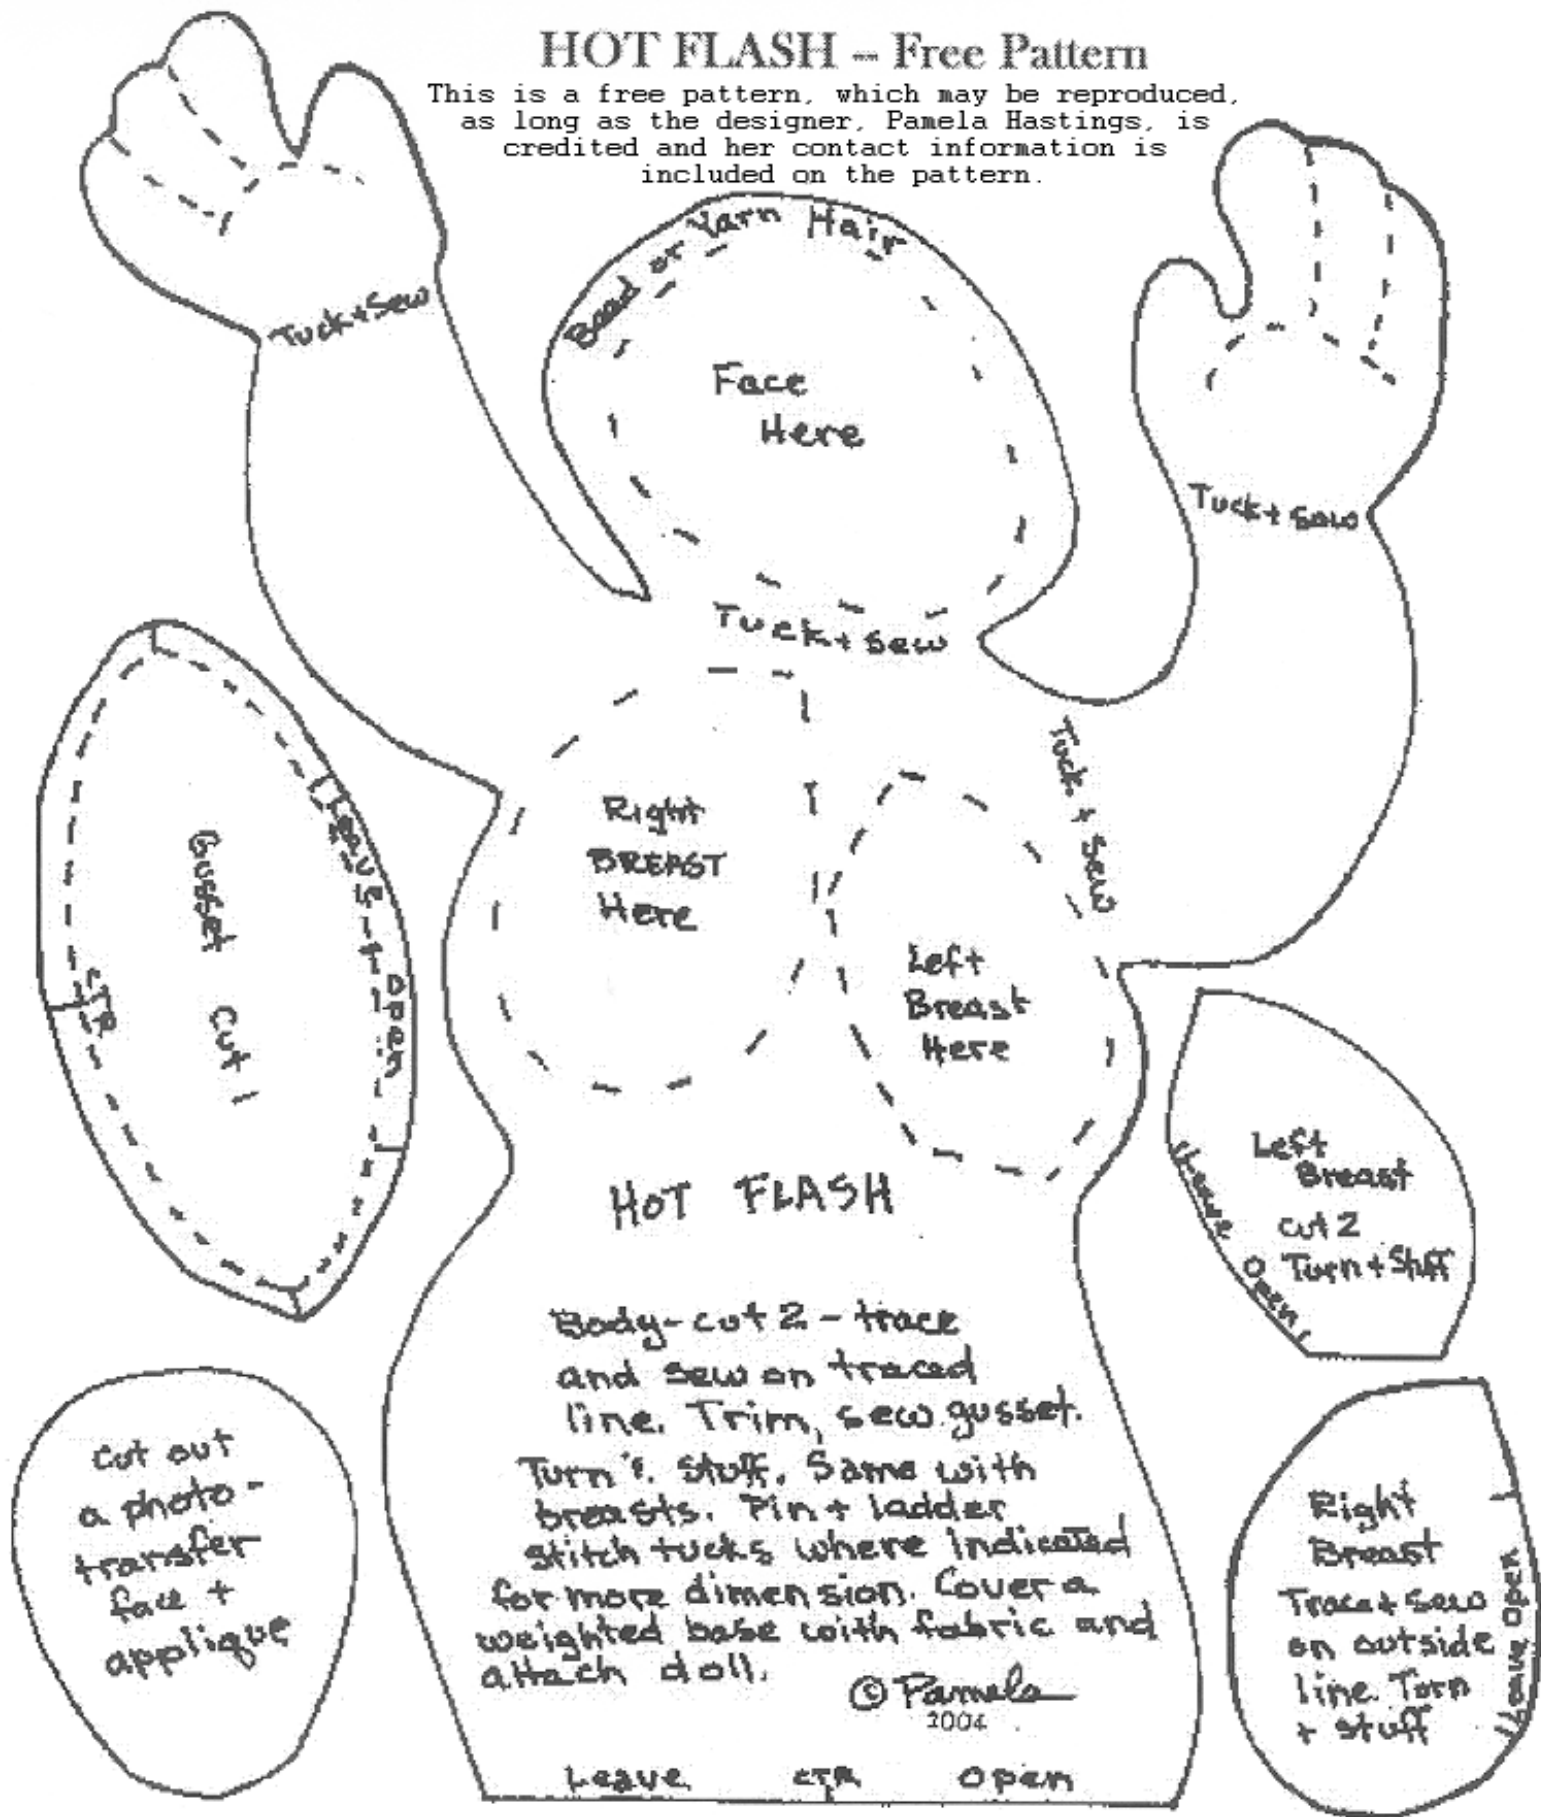 HOT FLASH – Free Pattern
This is a free pattern, which may be reproduced,
as long as the designer, Pamela Hastings, is
credited and her contact information is
included on the pattern.
Bead or Yarn Hair
Face
Here
Tuck + Sew
Tuck + Sew
Tuck + Sew
Tuck + Sew
Right
BREAST
Here
Left
Breast
Here
Gusset Cut 1
Leave Open
CTR
HOT FLASH
Body - cut 2 - trace
and sew on traced
line. Trim, sew gusset.
Turn & Stuff. Same with
breasts. Pin + ladder
stitch tucks where indicated
for more dimension. Cover a
weighted base with fabric and
attach doll.
© Pamela
2004
Leave CTR Open
Left
Breast
cut 2
Turn + Stuff
Leave Open
Cut out
a photo-
transfer
face +
applique
Right
Breast
Trace + Sew
on outside
line. Turn
+ stuff
Leave Open